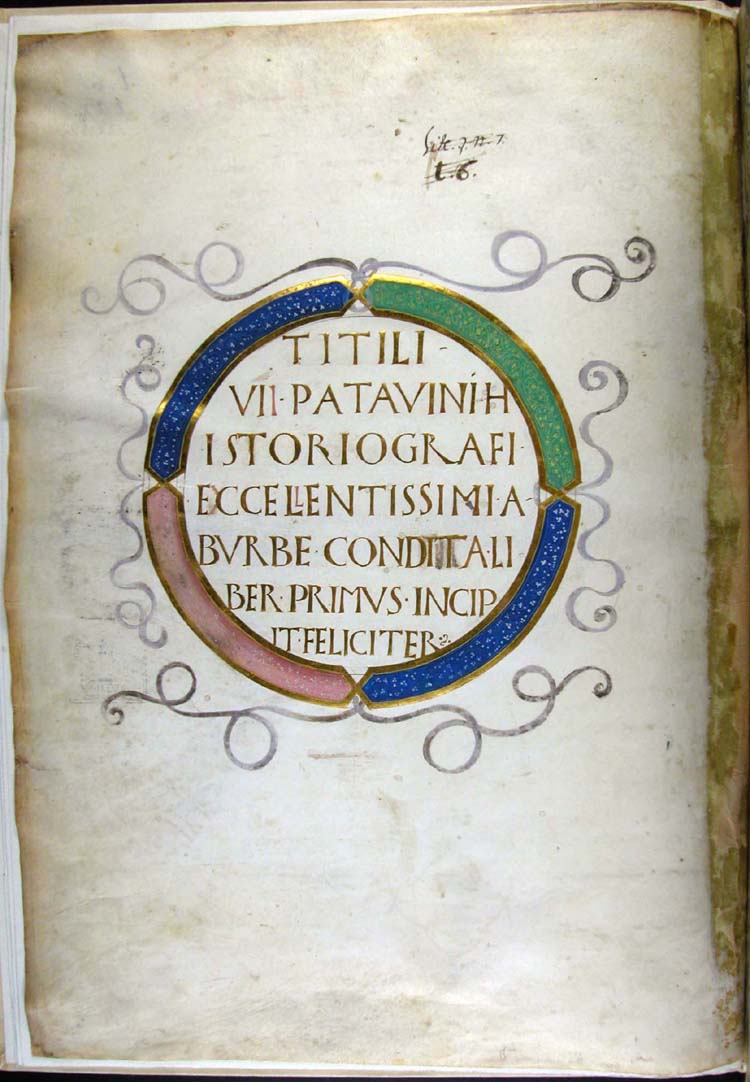 t. 6.
TITILI·
VII·PATAVINIH
ISTORIOGRAFI·
EXCELLENTISSIMI·A·
BVRBE·CONDITTA·LI
BER·PRIMVS·INCIP
IT·FELICITER